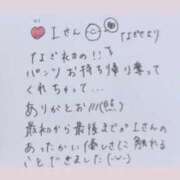 Iさん
なぎさより
なぎ初の!!
パンツお持ち帰り奪って
くれちゃって...
ありがとお///(照)
最初から最後までがIさんの
あったかい優しさに触れる
ことできました(^ω^)